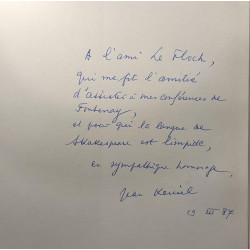 A l'ami Le Floch,
qui me fit l'amitié
d'assister à mes conférences de
Fontenay,
et pour qui la langue de
Shakespeare est limpide,
en sympathique hommage,
Jean
19 III 87